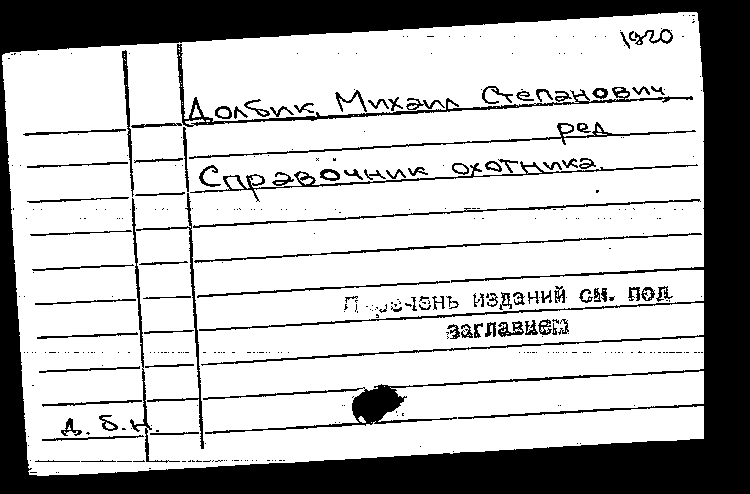 1920
Долбик, Михаил Степанович,
ред
Справочник охотника.
Перечень изданий см. под
заглавием
д. б. н.